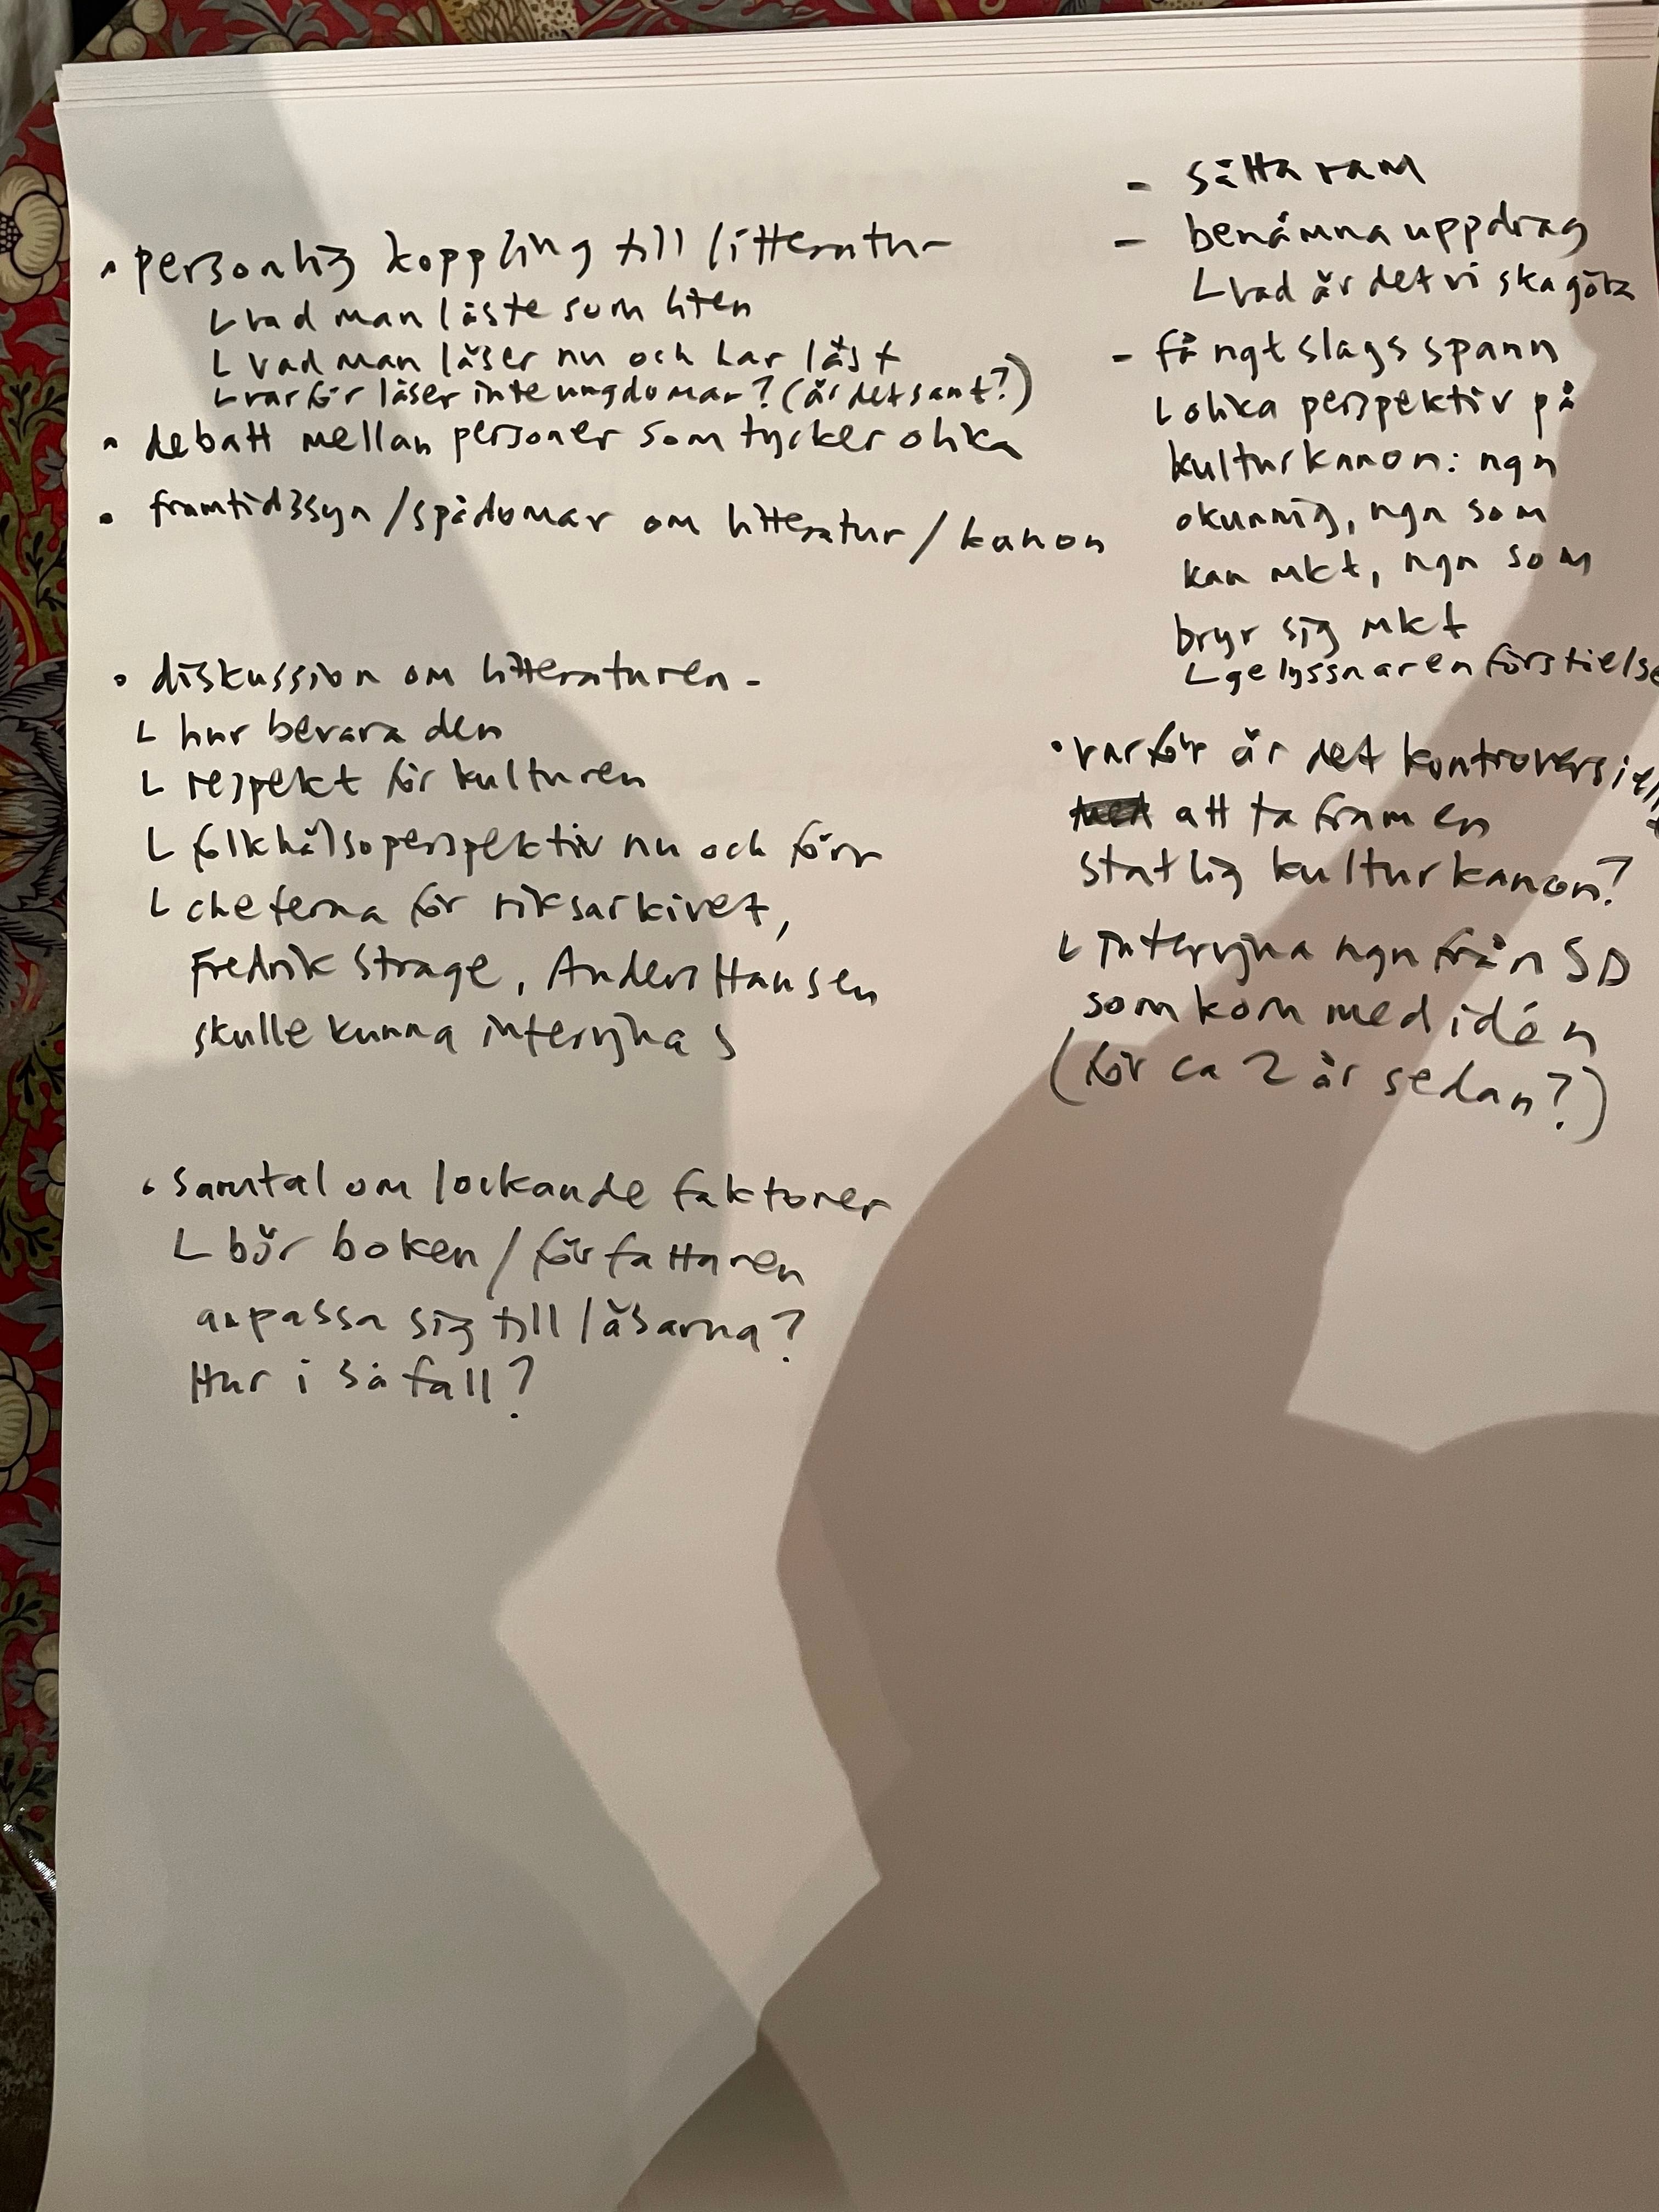 • personlig koppling till litteratur
L vad man läste som liten
L vad man läser nu och har läst
L varför läser inte ungdomar? (är det sant?)
• debatt mellan personer som tycker olika
• framtidssyn / spådomar om litteratur / kanon
• diskussion om litteraturen -
L hur bevara den
L respekt för kulturen
L folkhälsoperspektiv nu och förr
L cheferna för riksarkivet,
Fredrik Strage, Anders Hansen
skulle kunna intervjuas
• samtal om lockande faktorer
L bör boken / författaren
anpassa sig till läsarna?
Hur i så fall?
- sätta ram
- benämna uppdrag
L vad är det vi ska göra
- få ngt slags spann
L olika perspektiv på
kulturkanon: ngn
okunnig, ngn som
kan mkt, ngn som
bryr sig mkt
L ge lyssnaren förståelse
• varför är det kontroversiellt
att ta fram en
statlig kulturkanon?
L intervjua ngn från SD
som kom med idén
(för ca 2 år sedan?)